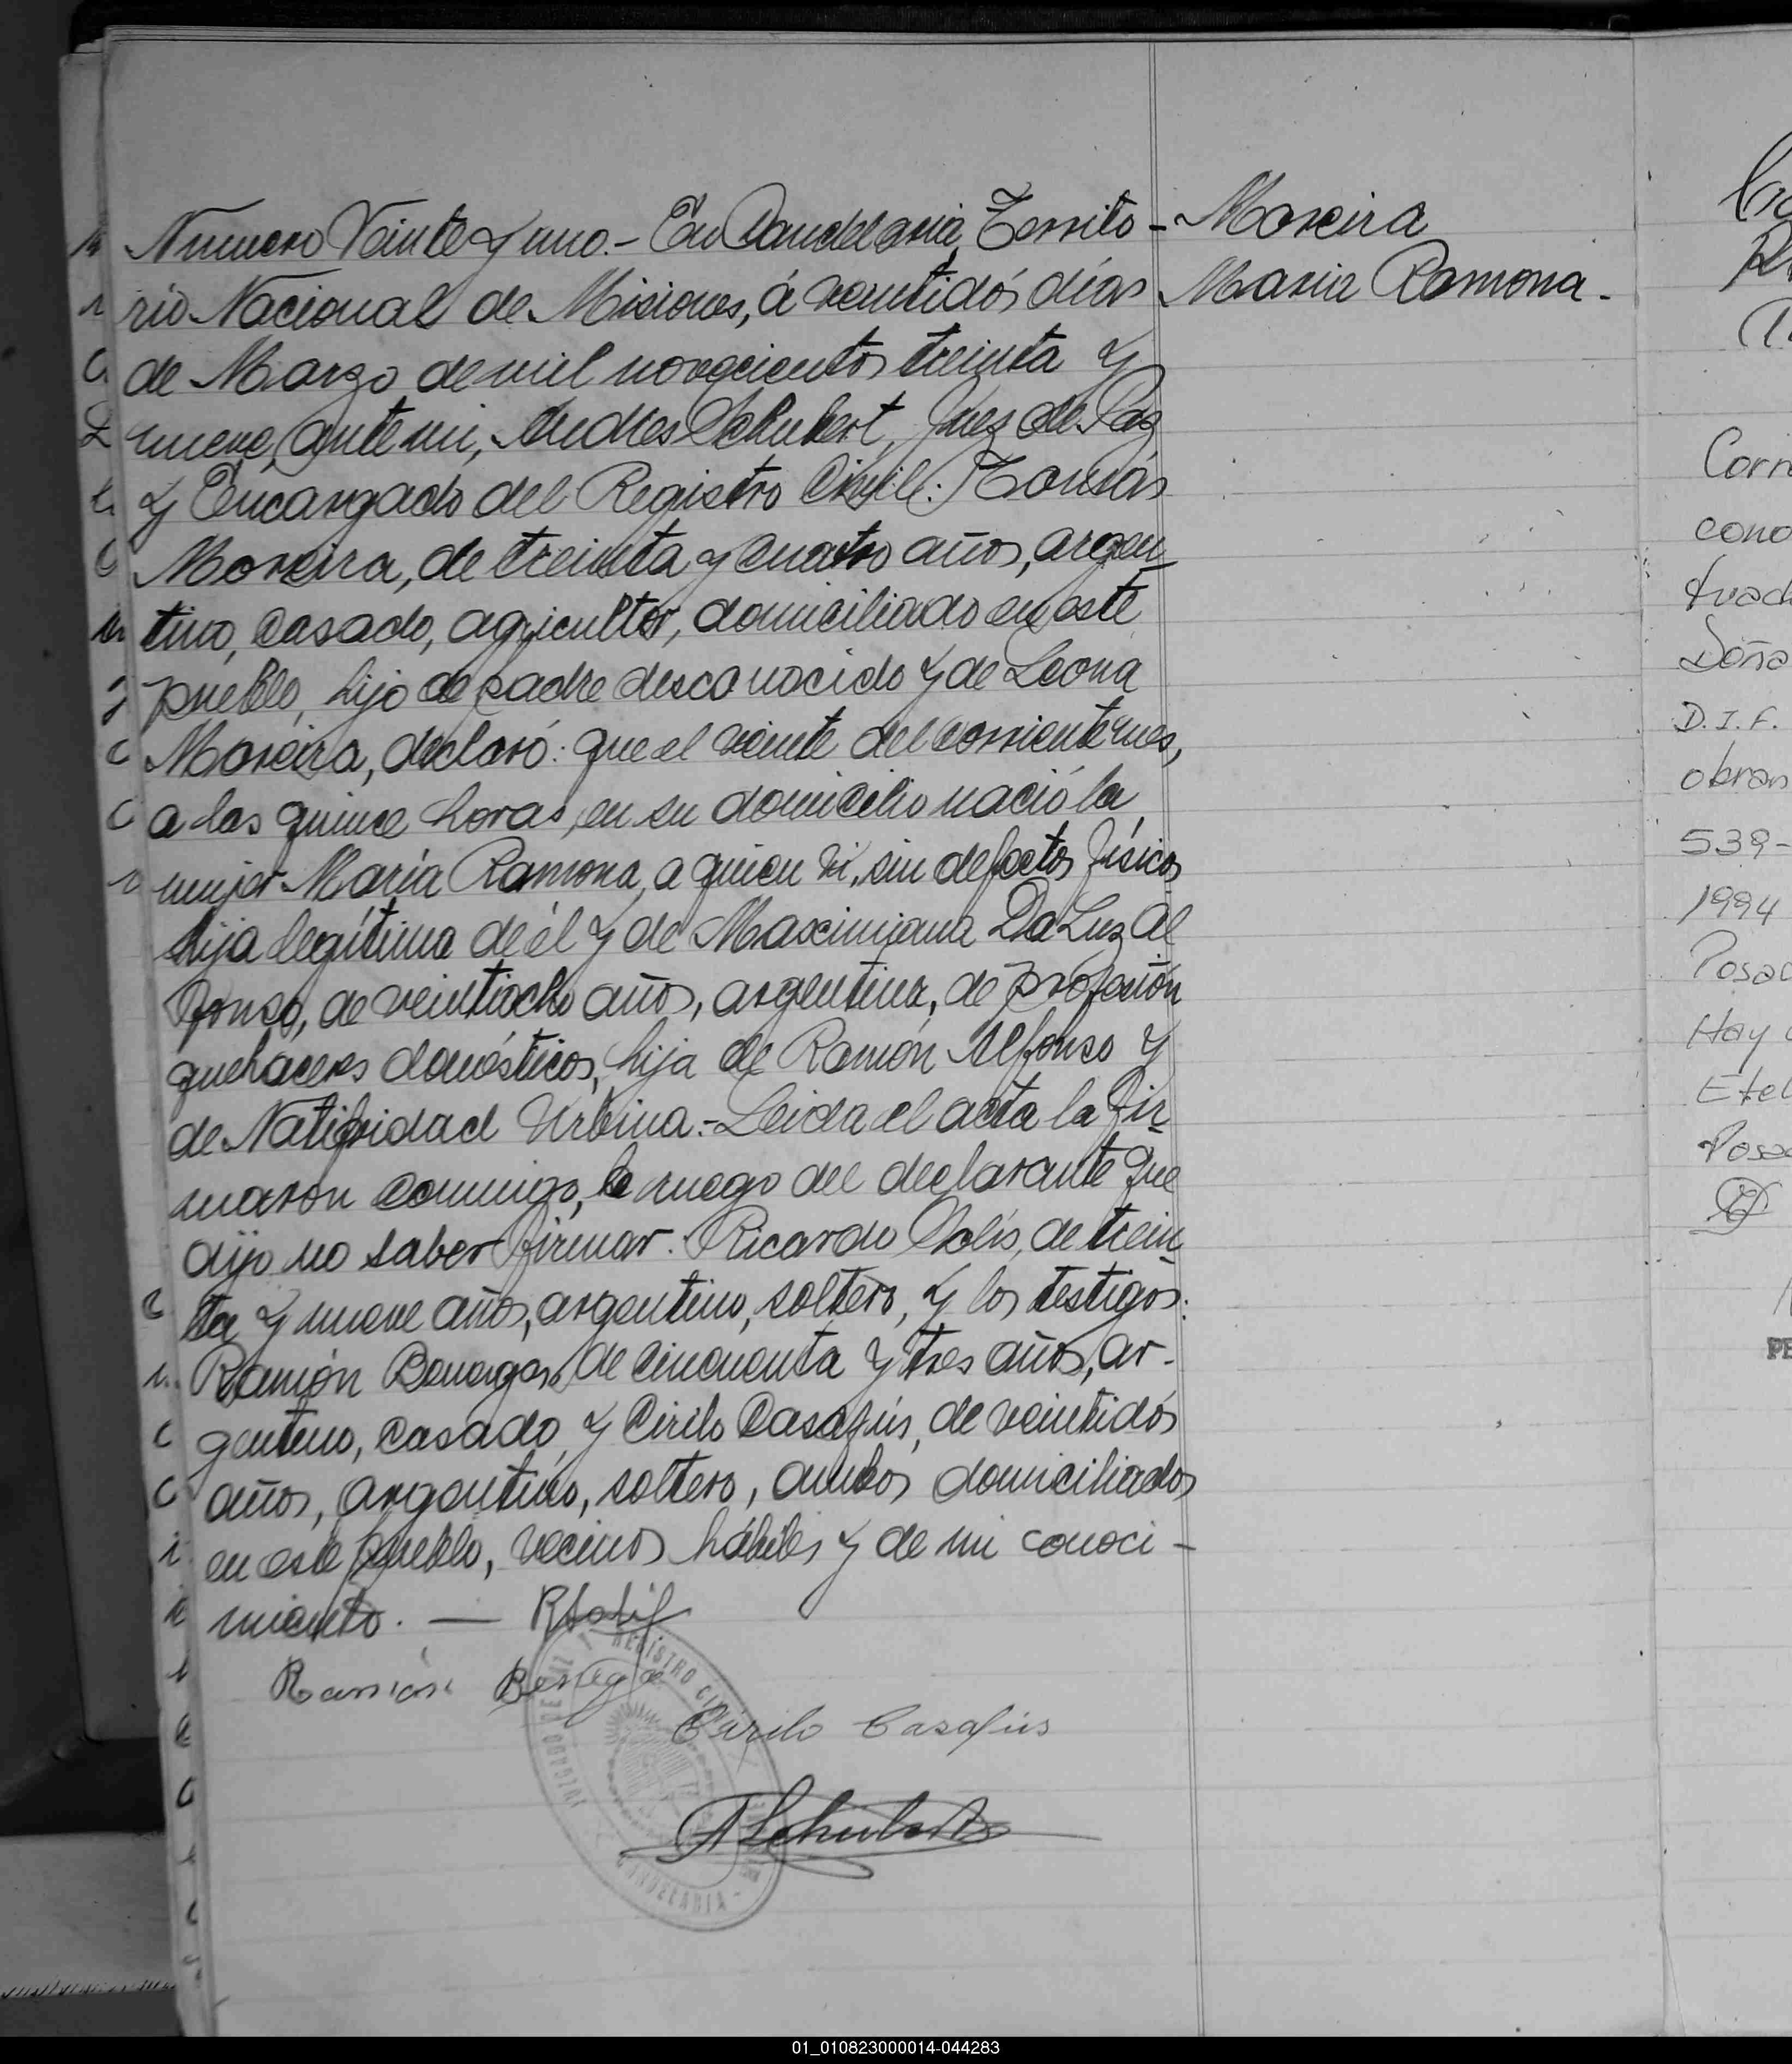 Numero Veinte y uno.- En Candelaria, Territo-
rio Nacional de Misiones, á veintidós días
de Marzo de mil novecientos treinta y
nueve, ante mi, Andres Schubert, Juez de Paz
y Encargado del Registro Civil: Tomás
Moreira, de treinta y cuatro años, argen-
tino, casado, agricultor, domiciliado en este
pueblo, hijo de padre desconocido y de Leona
Moreira, declaró: que el veinte del corriente mes,
a las quince horas, en su domicilio nació la
mujer María Ramona, a quien vi, sin defectos físicos
hija legítima de él y de Maximiana Da Luz Al
fonso, de veintiocho años, argentina, de profesión
quehaceres domésticos, hija de Ramón Alfonso y
de Natifridad Urbina.- Leida el acta la fir-
maron conmigo, a ruego del declarante que
dijo no saber firmar: Ricardo Solís, de trein-
ta y nueve años, argentino, soltero, y los testigos:
Ramón Benegas, de cincuenta y tres años, ar-
gentino, casado, y Cirilo Casafús, de veintidós
años, argentino, soltero, ambos domiciliados
en este pueblo, vecinos hábiles y de mi conoci-
miento. — RSolís
Ramón Benega
Cirilo Casafús
ASchubert
REGISTRO CIVIL
JUZGADO DE PAZ
CANDELARIA
Moreira
Maria Ramona.-
Corr
cono
tuad
Doña
D.I.F.
obran
539-
1994
Posad
Hay
Etel
Posa
PE
01_010823000014-044283